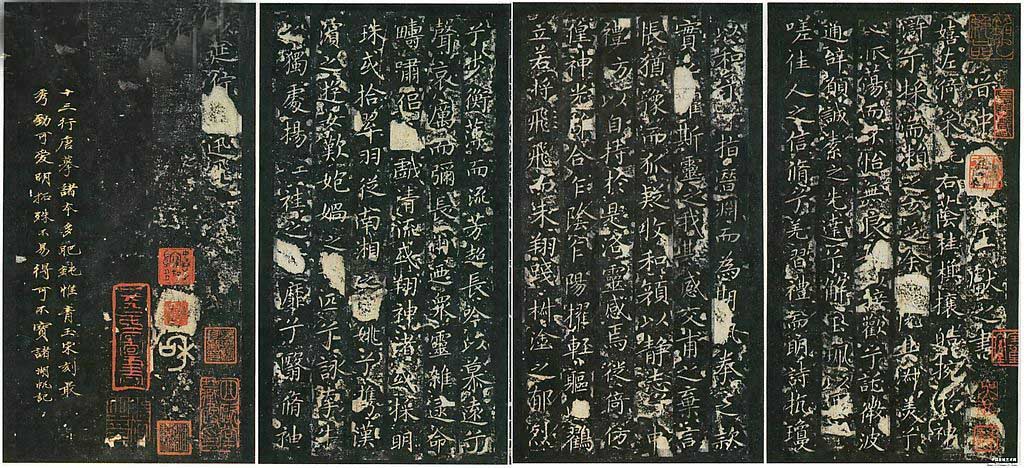 中書令王獻之書
嬉左倚采旄右蔭桂旗攘皓捥於神
滸兮采湍瀨之玄芝余悅其淑美兮
心振蕩而不怡無良媒以接歡兮託微波
以通辭願誠素之先達兮解玉珮而要之
嗟佳人之信脩兮羌習禮而明詩抗瓊
珶以和予兮指潛淵而為期執拳拳之款
實兮懼斯靈之我欺感交甫之棄言
悵猶豫而狐疑收和顏以靜志兮申
禮防以自持於是洛靈感焉徙倚仿
偟神光離合乍陰乍陽擢輕軀以鶴
立若將飛而未翔踐椒塗之郁烈
步蘅薄而流芳超長吟以慕遠兮
聲哀厲而彌長爾乃眾靈雜遝命
疇嘯侶或戲清流或翔神渚或採明
珠或拾翠羽從南湘之二姚兮攜漢
濱之遊女歎匏媧之無匹兮詠牽牛
之獨處揚輕袿之猗靡兮翳脩袖
以延佇體迅飛
十三行唐摹諸本多肥鈍惟青玉宋刻最
秀勁可爱明拓殊不易得可不寶諸瀾帆記